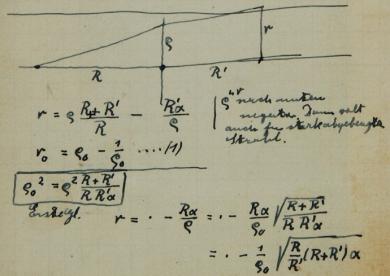 ρ r
R R'
r = ρ (R+R')/R − R'α/ρ
ρ nach unten
negativ. Dann gilt
auch für stark abgebeugte
Strahl.
r₀ = ρ₀ − 1/ρ₀ ....(1)
ρ₀² = ρ² (R+R')/(R R'α)
r = · − Rα/ρ = · − Rα/ρ₀ √((R+R')/(R R'α))
= · − 1/ρ₀ √(R/R' (R+R') α)